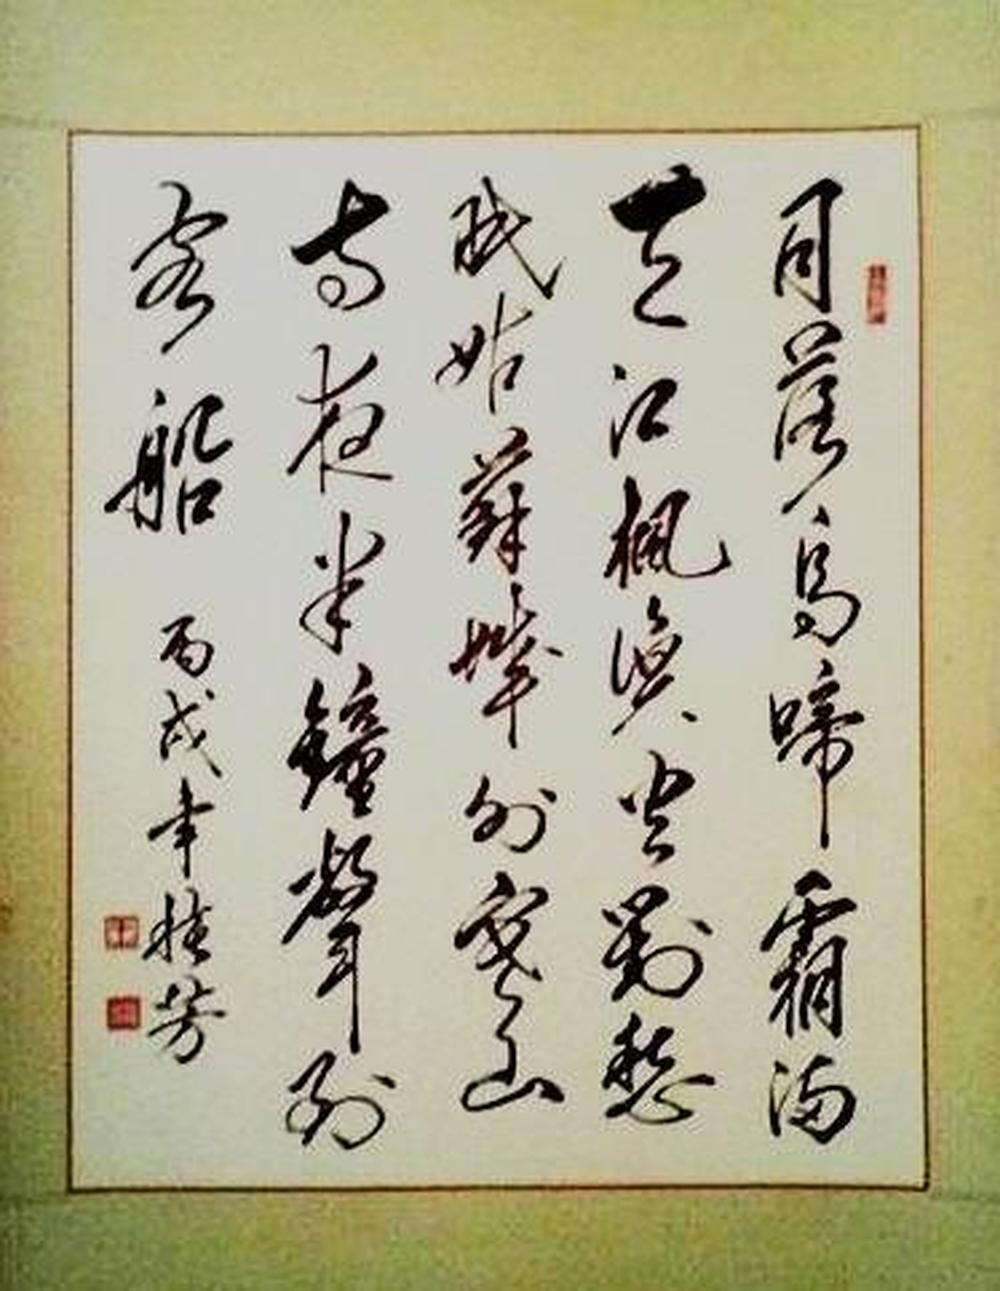 月落烏啼霜滿
天江楓漁火對愁
眠姑蘇城外寒山
寺夜半鐘聲到
客船 丙戌年芳